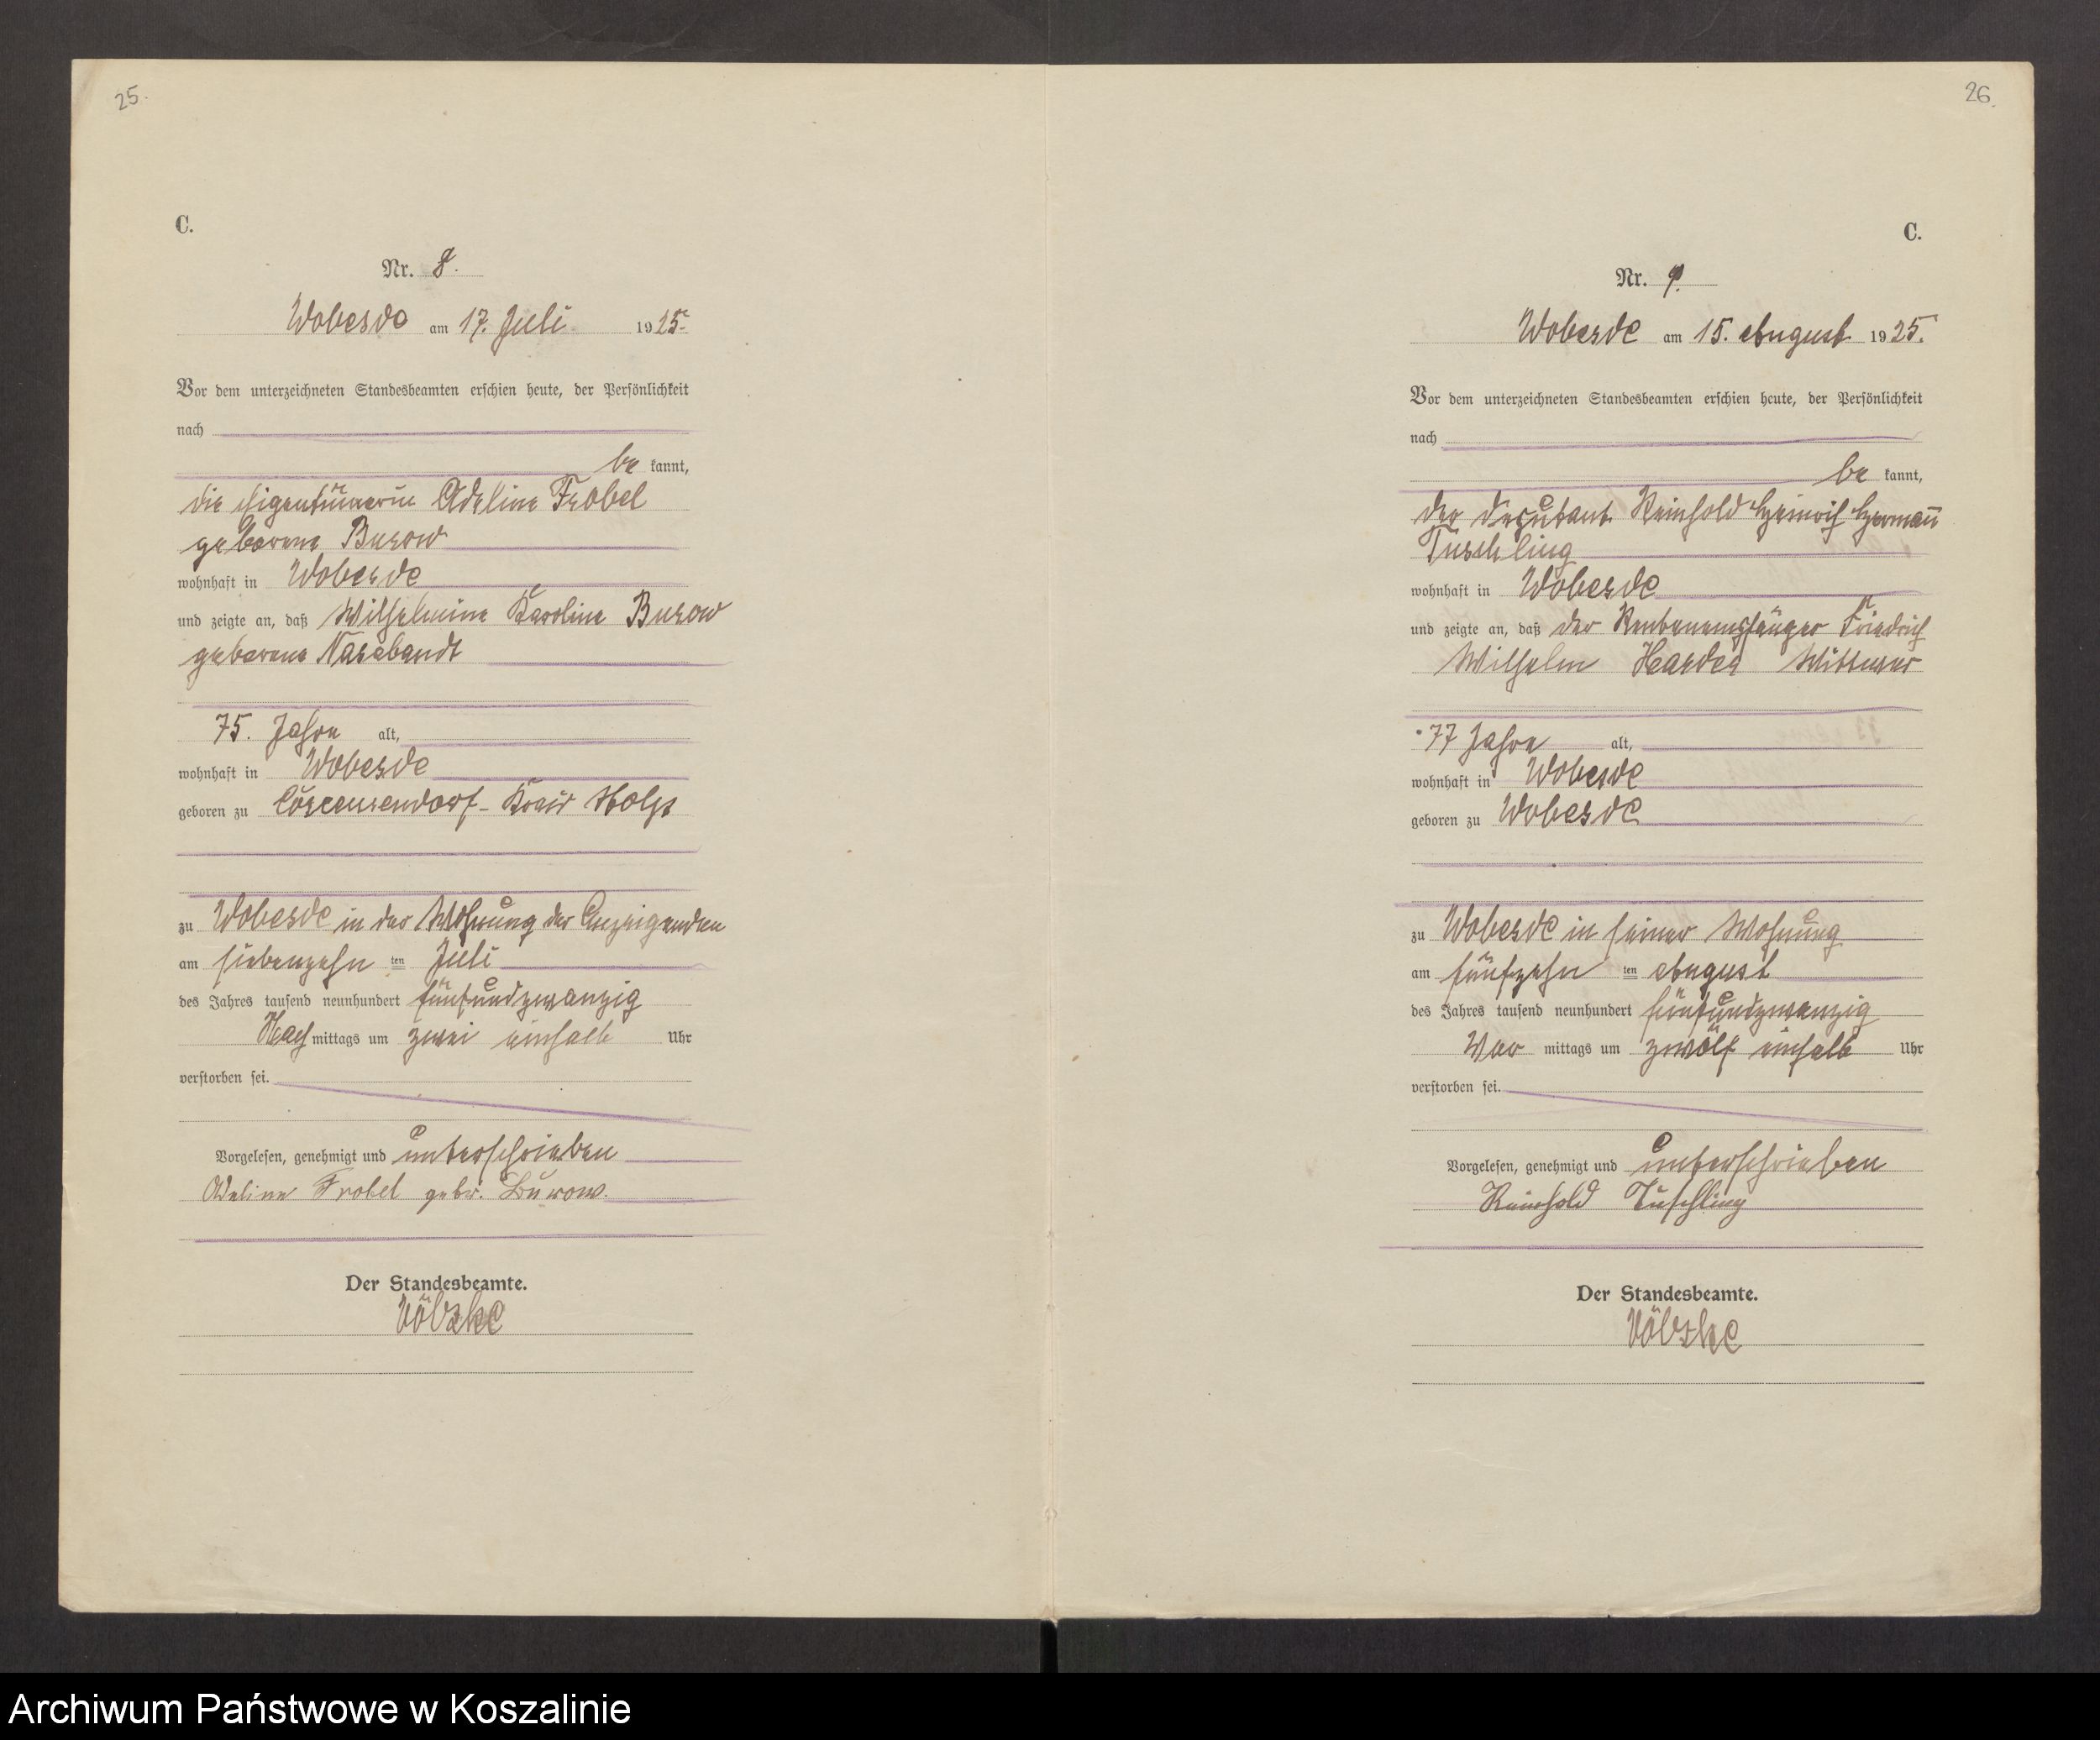 25.
C.
Nr. 8.
Wobesde am 17. Juli 1925.
Vor dem unterzeichneten Standesbeamten erschien heute, der Persönlichkeit
nach
be kannt,
die Eigentümerin Adeline Frobel
geborene Burow
wohnhaft in Wobesde
und zeigte an, daß Wilhelmine Karoline Burow
geborene Nasebandt
75. Jahre alt,
wohnhaft in Wobesde
geboren zu Kreis Stolp
zu Wobesde in der Wohnung der Anzeigenden
am siebenzehn ten Juli
des Jahres tausend neunhundert fünfundzwanzig
Nach mittags um zwei einhalb Uhr
verstorben sei.
Vorgelesen, genehmigt und unterschrieben
Adeline Frobel gebr. Burow.
Der Standesbeamte.
26.
C.
Nr. 9.
Wobesde am 15. August 1925.
Vor dem unterzeichneten Standesbeamten erschien heute, der Persönlichkeit
nach
be kannt,
der Deputant Reinhold Heinrich Hermann
Tuschling
wohnhaft in Wobesde
und zeigte an, daß der Rentenempfänger Friedrich
Wilhelm Harder Wittwer
77 Jahre alt,
wohnhaft in Wobesde
geboren zu Wobesde
zu Wobesde in seiner Wohnung
am fünfzehn ten August
des Jahres tausend neunhundert fünfundzwanzig
Vor mittags um zwölf einhalb Uhr
verstorben sei.
Vorgelesen, genehmigt und unterschrieben
Reinhold Tuschling
Der Standesbeamte.
Archiwum Państwowe w Koszalinie